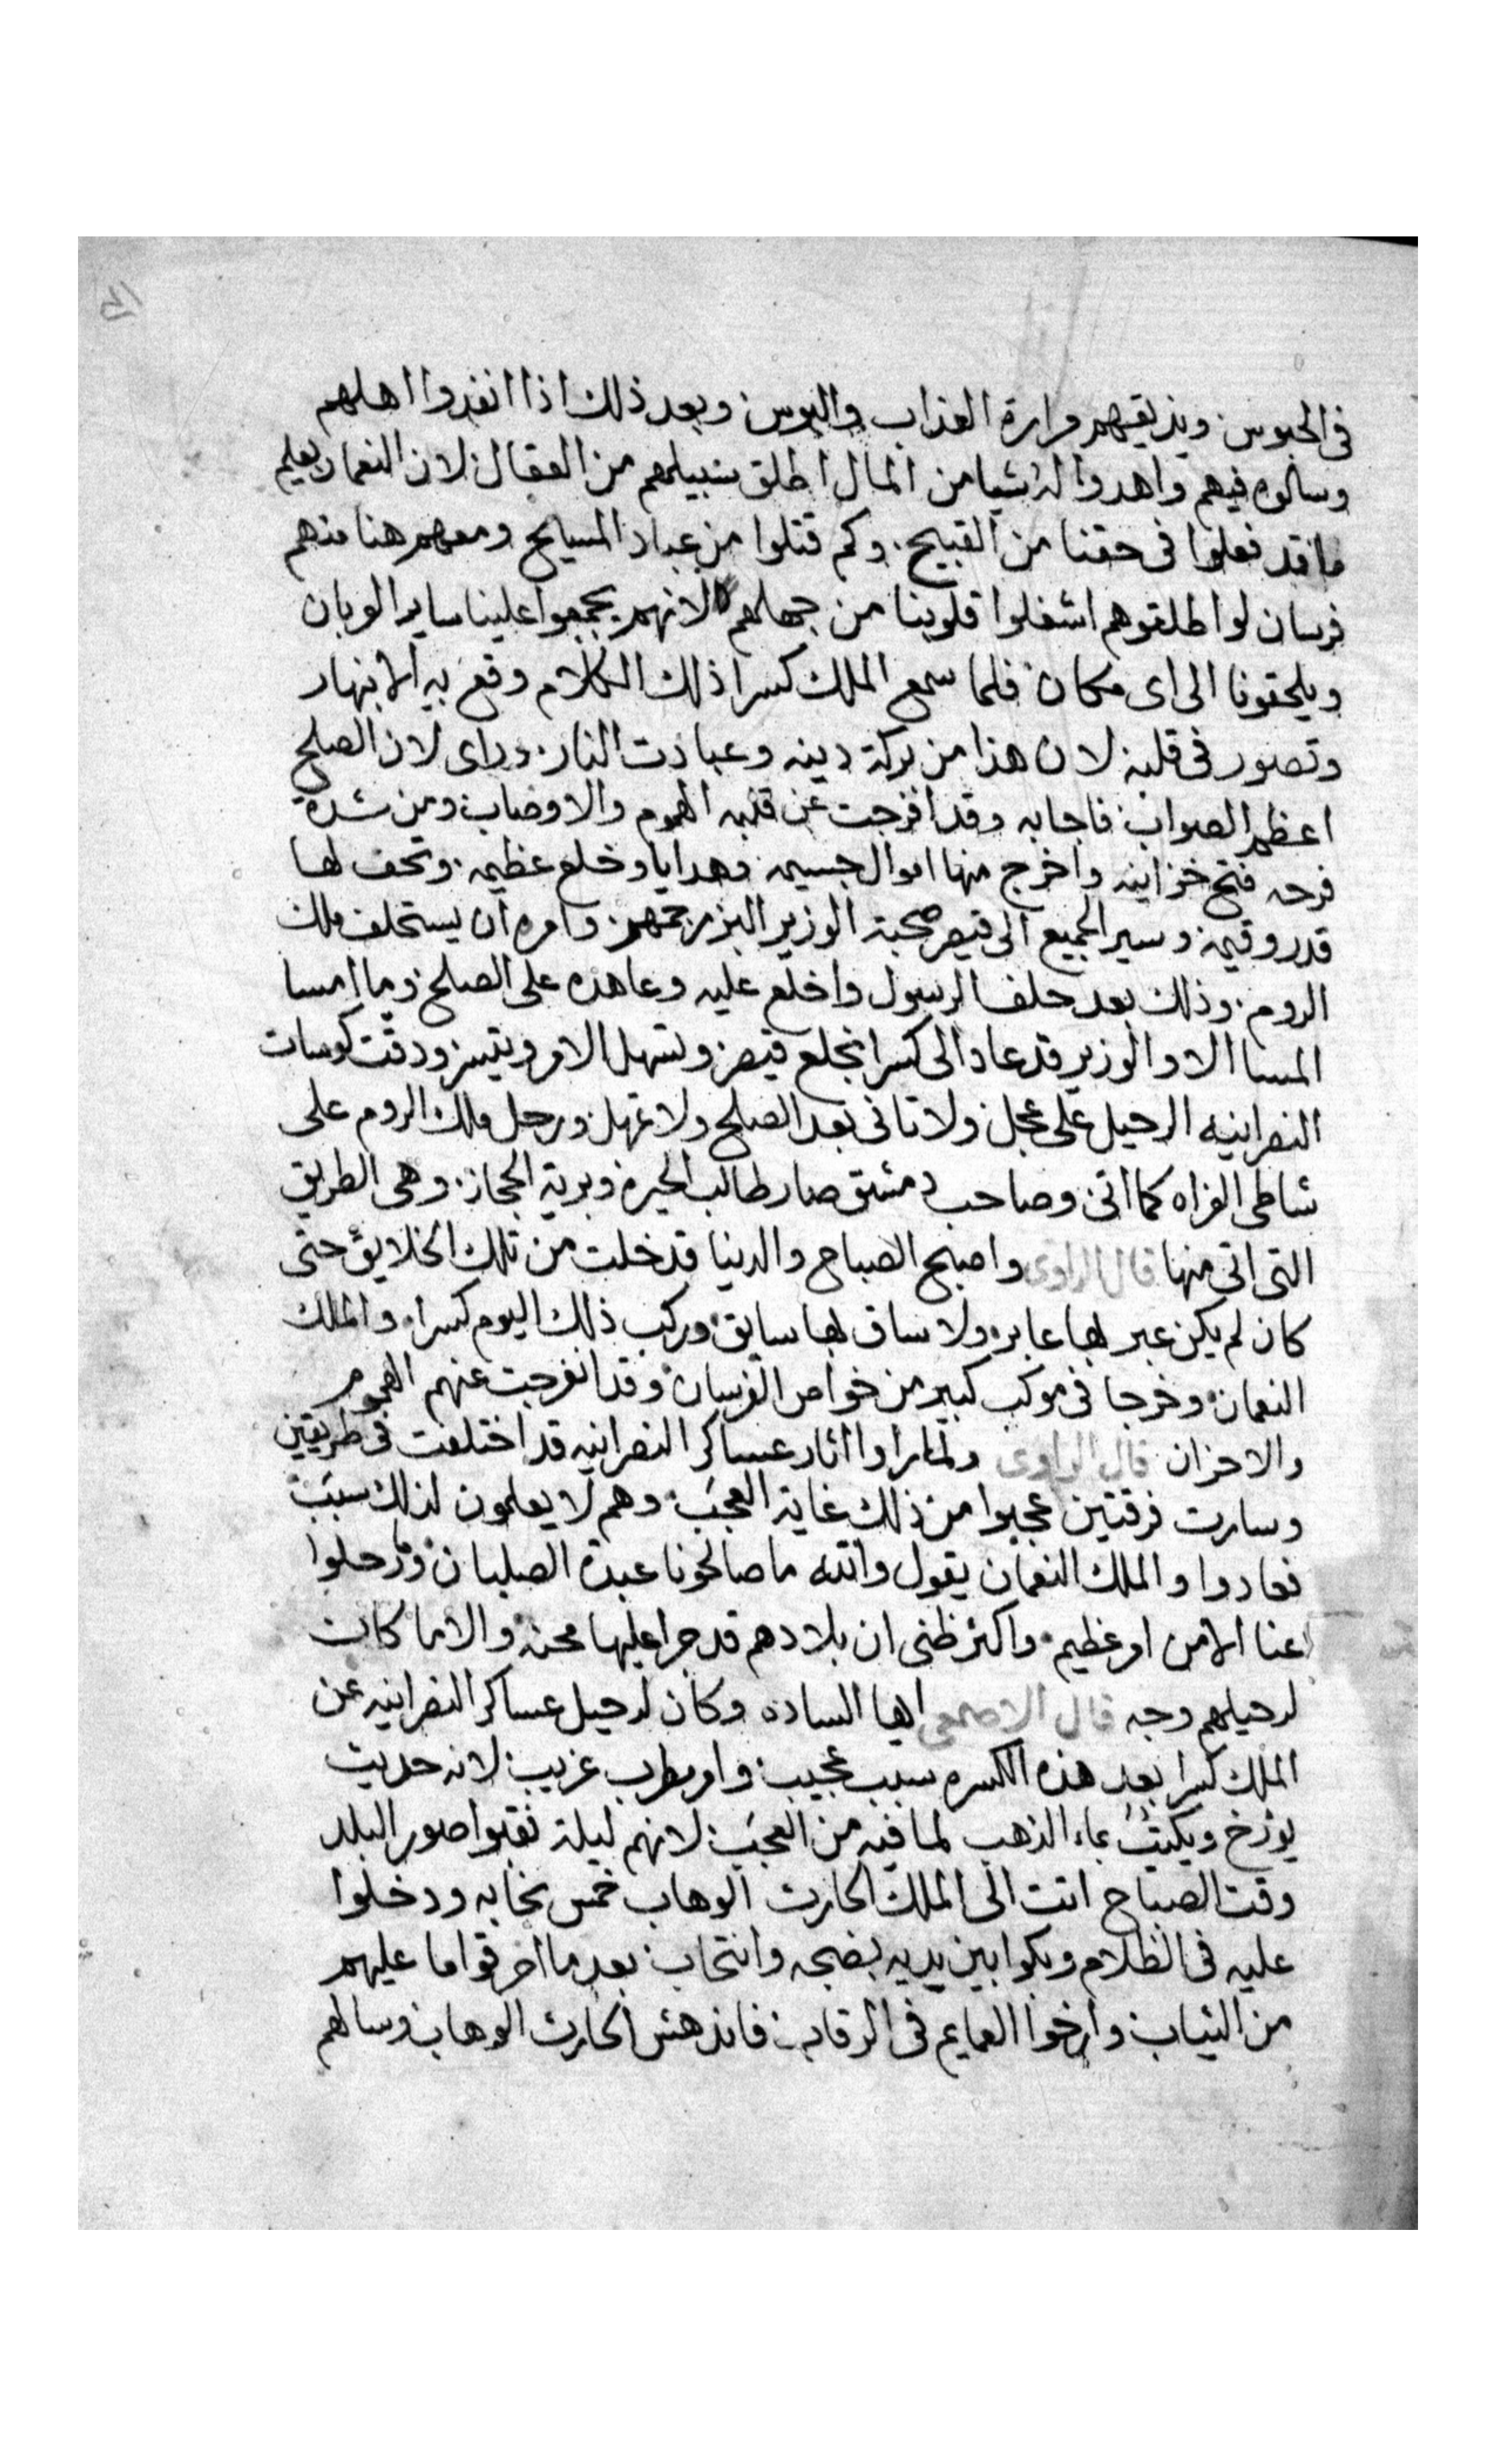 فى الحبوس ويذيقهم مرارة العذاب والبوس وبعد ذلك اذا انفدوا اهلهم
وسالوه فيهم واهدوا له شيا من المال اطلق سبيلهم من العقال لان النعمان يعلم
ما قد فعلوا فى حقنا من القبيح وكم قتلوا من عباد المسايح ومعهم هنا منهم
فرسان لو اطلقوهم اشغلوا قلوبنا من جهلهم لانهم يجمعوا علينا ساير العربان
ويلحقونا الى اى مكان فلما سمع الملك كسرا ذلك الكلام وقع به الانبهار
وتصور فى قلبه لان هذا من بركة دينه وعبادت النار وراى لان الصلح
اعظم الصواب فاجابه وقد افرجت عن قلبه الهموم والاوصاب ومن شدة
فرحه فتح خزاينه واخرج منها اموال جسيمه وهدايا وخلع عظيمه وتحف لها
قدر وقيمة وسير الجميع الى قيصر صحبة الوزير البزرجمهر وامره ان يستحلف ملك
الروم وذلك بعد حلف الرسول واخلع عليه وعاهده على الصلح وما امسا
المسا الا والوزير قد عاد الى كسرا بخلع قيصر وتسهل الامر وتيسر ودقت كوسات
النصرانيه الرحيل على عجل ولا تانى بعد الصلح ولا تمهل ورحل ملك الروم على
شاطى الفراه كما اتى وصاحب دمشق صار طالب الحيرة وبرية الحجاز وهى الطريق
التى اتى منها قال الراوى واصبح الصباح والدنيا قد خلت من تلك الخلايق حتى
كان لم يكن عبر بها عابر ولا ساق بها سايق وركب ذلك اليوم كسرا والملك
النعمان وخرجا فى موكب كبير من خواص الفرسان وقد انفرجت عنهم الهموم
والاحزان قال الراوى ولما راوا اثار عساكر النصرانيه قد اختلفت فى طريقين
وسارت فرقتين عجبوا من ذلك غاية العجب وهم لا يعلمون لذلك سبب
فعادوا والملك النعمان يقول والله ما صالحونا عبدة الصلبان وما رحلوا
عنا الا من امر عظيم واكثر ظنى ان بلادهم قد جرا عليها محنه والا ما كان
لرحيلهم وجه قال الاصمعى ايها الساده وكان لرحيل عساكر النصرانيه عن
الملك كسرا بعد هذه الكسره سبب عجيب وامر مطرب غريب لانه حديث
يورخ ويكتب بماء الذهب لما فيه من العجب لانهم ليلة نقبوا صور البلد
وقت الصباح اتت الى الملك الحارث الوهاب خمس نجابه ودخلوا
عليه فى الظلام وبكوا بين يديه بضجه وانتحاب بعد ما اخرقوا ما عليهم
من الثياب وارخوا العمايم فى الرقاب فاندهش الحارث الوهاب وسالهم